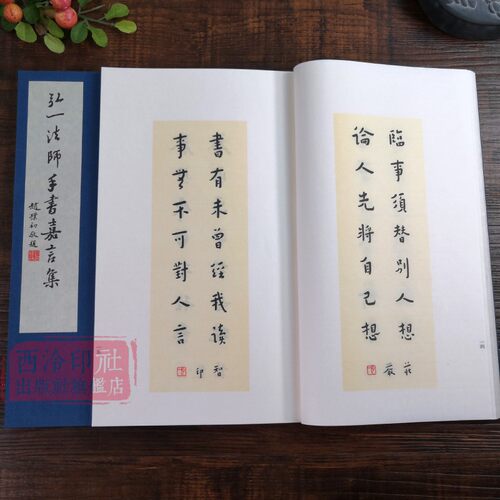 弘一法師手書嘉言集
趙樸初敬題
臨事須替別人想
論人先將自己想
莊嚴
書有未曾經我讀
事無不可對人言
智印
西泠印社
出版社旗艦店